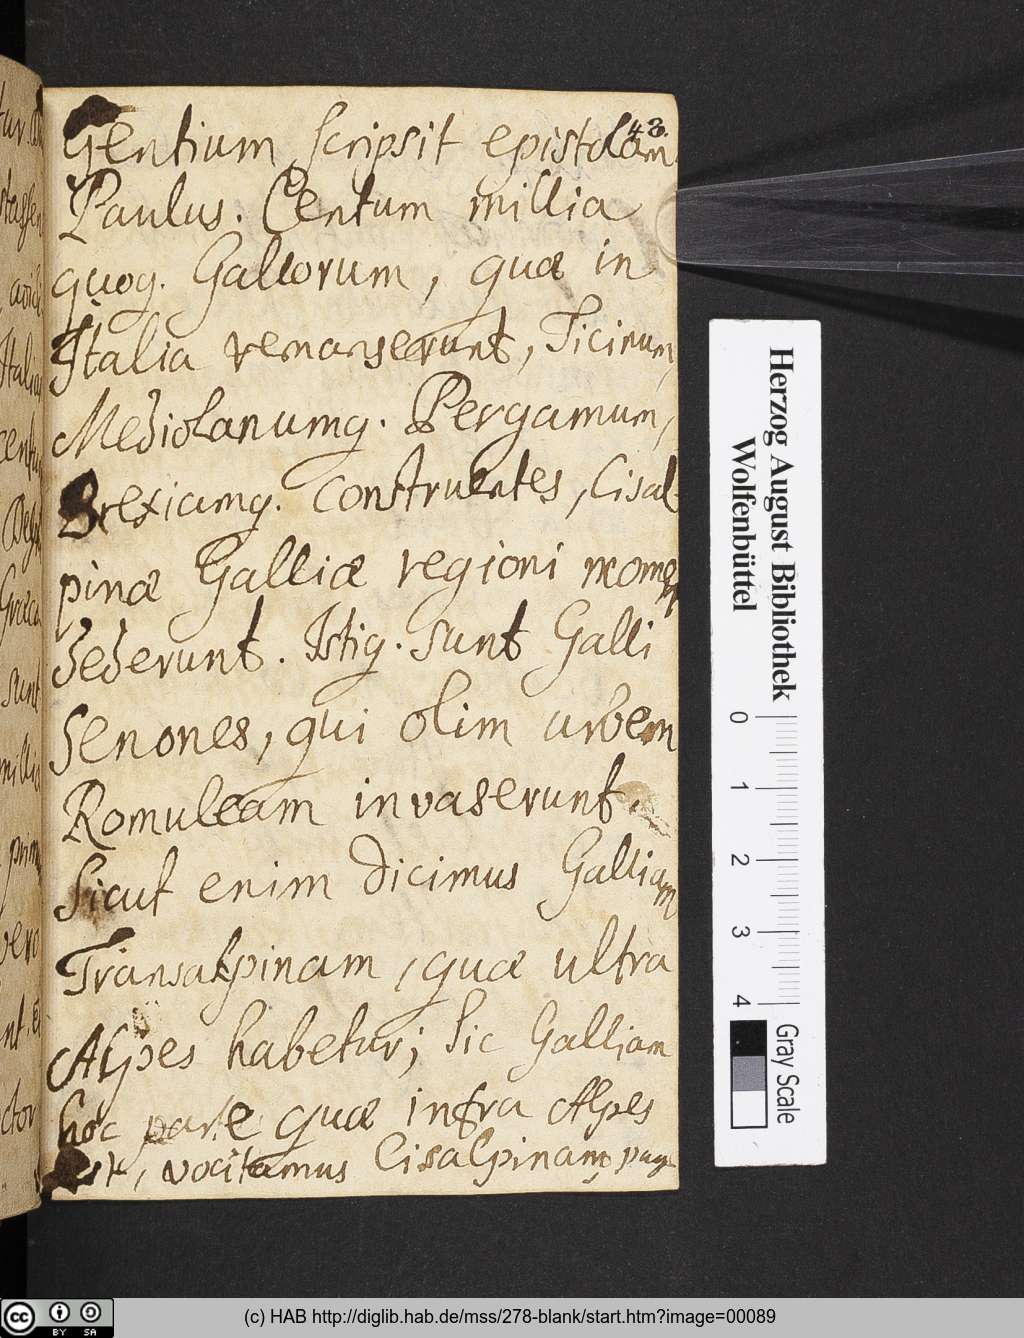 43.
Gentium scripsit epistolam
Paulus. Centum millia
quoq. Gallorum, quæ in
Italia remanserunt, Ticinum,
Mediolanumq. Pergamum,
Brexiamq. construentes, Cisal-
pinæ Galliæ regioni nomen
dederunt. Istiq. sunt Galli
Senones, qui olim urbem
Romuleam invaserunt.
Sicut enim dicimus Galliam
Transalpinam, quæ ultra
Alpes habetur; sic Galliam
hac parte quæ infra Alpes
est, vocitamus Cisalpinam,
Herzog August Bibliothek
Wolfenbüttel
0 1 2 3 4
Gray Scale
cc BY SA
(c) HAB http://diglib.hab.de/mss/278-blank/start.htm?image=00089